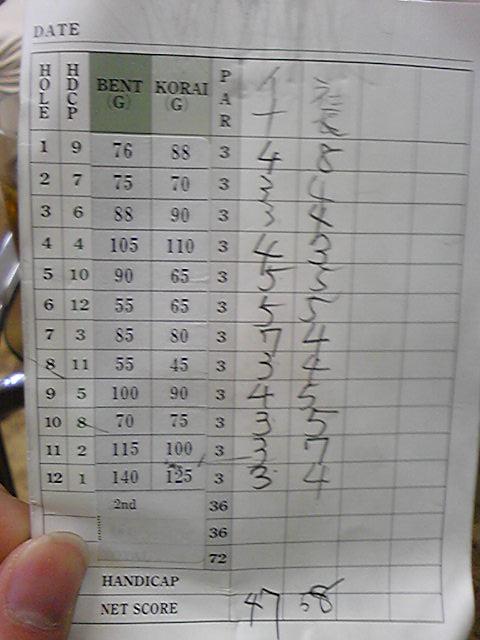 DATE
HOLE HDCP BENT (G) KORAI (G) PAR
1 9 76 88 3 4 8
2 7 75 70 3 3 4
3 6 88 90 3 3 4
4 4 105 110 3 4 3
5 10 90 65 3 5 5
6 12 55 65 3 5 5
7 3 85 80 3 7 4
8 11 55 45 3 3 4
9 5 100 90 3 4 5
10 8 70 75 3 3 5
11 2 115 100 3 3 7
12 1 140 125 3 3 4
2nd 36
36
72
HANDICAP
NET SCORE 47 58